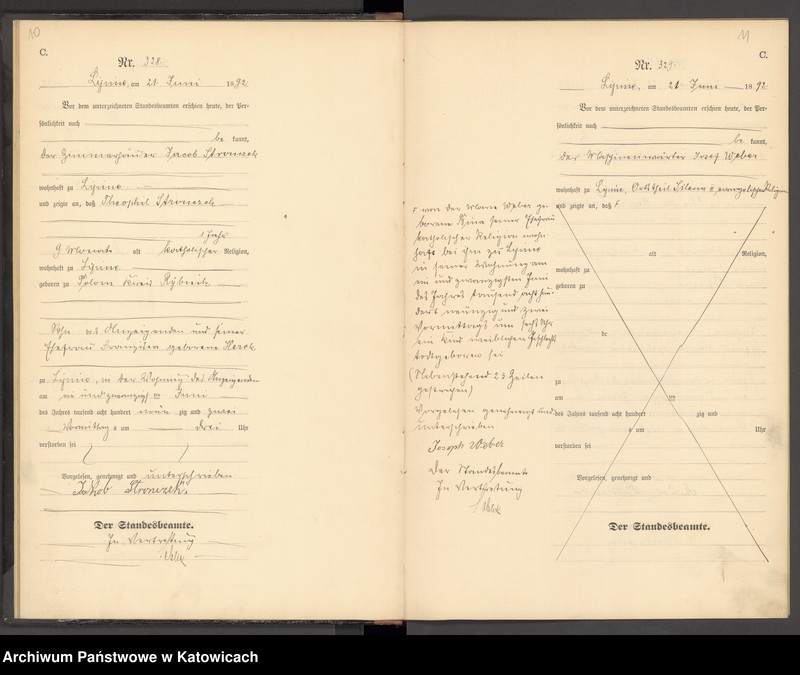 10
C.
Nr. 328.
Lipine, am 21. Juni 1892
Vor dem unterzeichneten Standesbeamten erschien heute, der Per-
sönlichkeit nach
be kannt,
der Zimmerhäuer Jacob Stronczek
wohnhaft zu Lipine
und zeigte an, daß Theophil Stronczek
1 Jahr
9 Monate alt katholischer Religion,
wohnhaft zu Lipine
geboren zu Kreis Rybnik
Sohn des Anzeigenden und seiner
Ehefrau geborene
zu Lipine, in der Wohnung des Anzeigenden
am ein und zwanzigsten Juni
des Jahres tausend acht hundert neun zig und zwei
Vormittags um drei Uhr
verstorben sei
Vorgelesen, genehmigt und unterschrieben
Jakob Stronczek.
Der Standesbeamte.
In Vertretung
11
C.
Nr. 329.
Lipine, am 21 Juni 1892
Vor dem unterzeichneten Standesbeamten erschien heute, der Per-
sönlichkeit nach
be kannt,
der Maschinenwärter Josef Weber
wohnhaft zu Lipine, Ortstheil evangelischer Religion
und zeigte an, daß
alt Religion,
wohnhaft zu
geboren zu
de
zu
am ten
des Jahres tausend acht hundert zig und
um Uhr
verstorben sei
Vorgelesen, genehmigt und
Der Standesbeamte.
von der Marie Weber ge-
borene seiner Ehefrau
katholischer Religion wohn-
haft bei ihm zu Lipine
in seiner Wohnung am
ein und zwanzigsten Juni
des Jahres tausend acht hun-
dert neunzig und zwei
Vormittags um sechs Uhr
ein Kind weiblichen Geschlechts
todtgeboren sei
(Nebenstehend 23 Zeilen
gestrichen)
Vorgelesen genehmigt und
unterschrieben
Joseph Weber
Der Standesbeamte
In Vertretung
Archiwum Państwowe w Katowicach